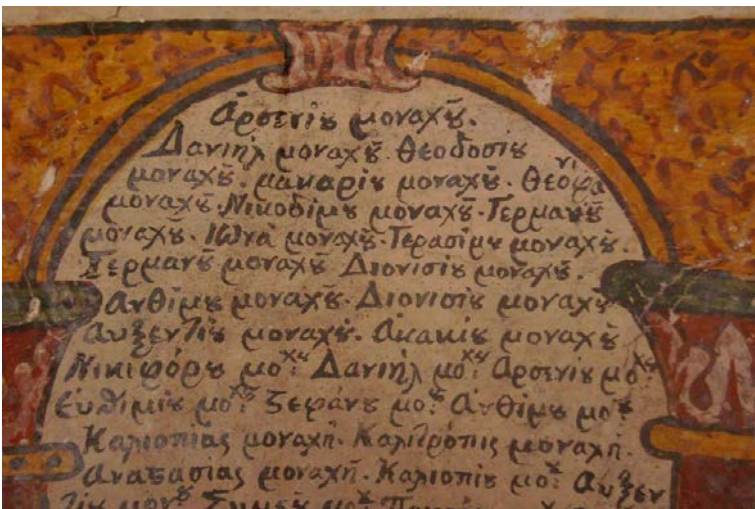 Ἀρσενίȣ μοναχȣ͂.
Δανιὴλ μοναχȣ͂. Θεοδοσίȣ
μοναχȣ͂. μακαρίȣ μοναχȣ͂. Θεοφα
νι
μοναχȣ͂. Νικοδίμȣ μοναχȣ͂. Γερμανȣ͂
μοναχȣ͂. Ἰωνᾶ μοναχȣ͂. Γερασίμȣ μοναχȣ͂.
Γερμανȣ͂ μοναχȣ͂ Διονισίȣ μοναχȣ͂.
Ἀνθίμȣ μοναχȣ͂. Διονισίȣ μοναχȣ͂
Αὐξεντίȣ μοναχȣ͂. Ακακίȣ μοναχȣ͂
Νικιφόρȣ μοχȣ. Δανιὴλ μοχȣ. Αρσενίȣ μοχȣ.
Εὐθιμίȣ μοχȣ. Στεφάνȣ μοȣ. Ἀνθίμȣ μοȣ
Καλιοπίας μοναχῆ. Καλιτρόπις μοναχῆ.
Αναστασίας μοναχῆ. Καλιοπίȣ μοȣ. Αυξεν
τίȣ μονȣ Συμεὼν μοȣ